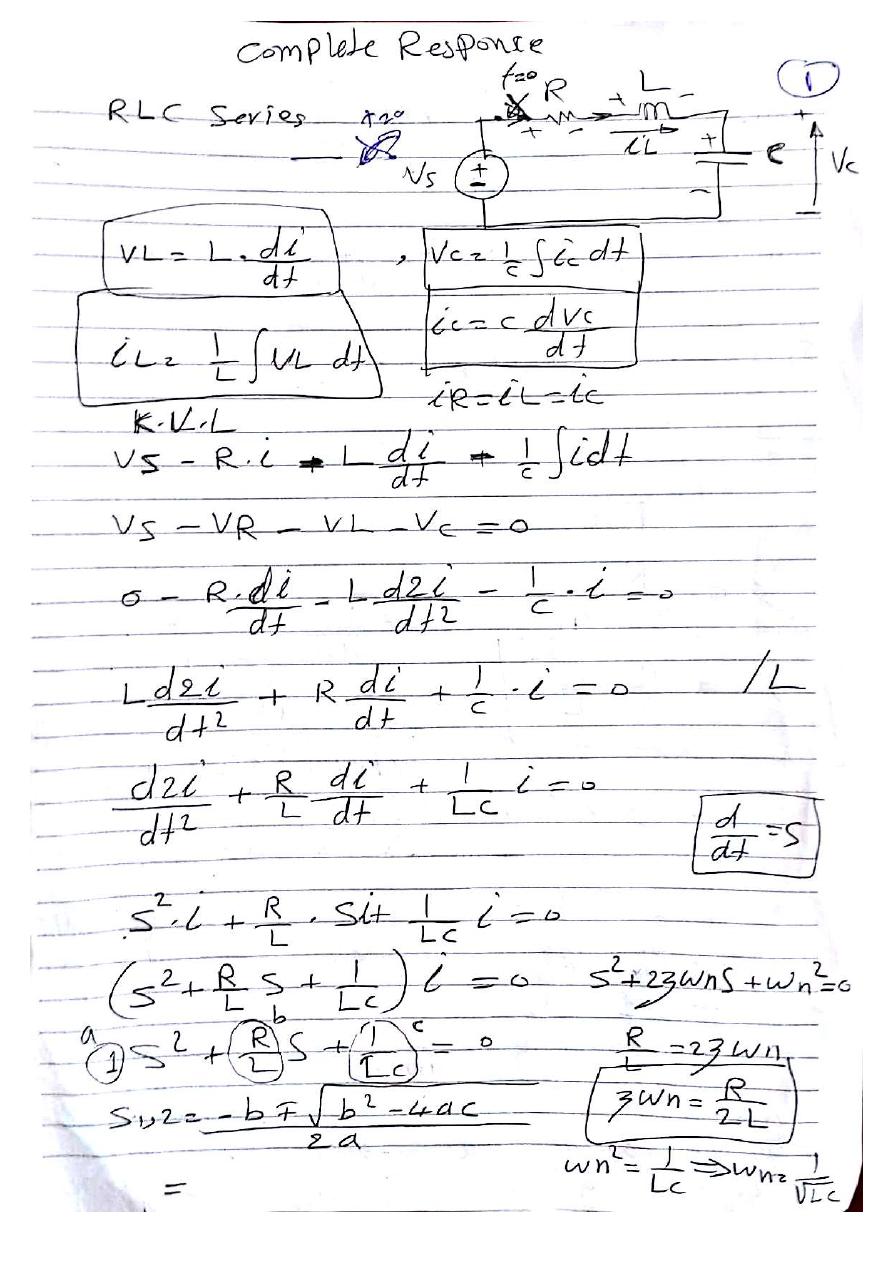 Complete Responce
①
t=0
R
+ L -
RLC Series
t=0
+ -
iL
+
-
Vs
+
-
C
+
Vc
-
VL = L . di/dt , Vc = 1/c ∫ ic dt
iL = 1/L ∫ VL dt
ic = c dvc/dt
iR = iL = ic
K.V.L
VS - R.i - L di/dt - 1/c ∫ idt
VS - VR - VL - Vc = 0
0 - R.di/dt - L d2i/dt2 - 1/c . i = 0
L d2i/dt2 + R di/dt + 1/c . i = 0 /L
d2i/dt2 + R/L di/dt + 1/LC i = 0
d/dt = S
S² . i + R/L . Si + 1/LC i = 0
(S² + R/L S + 1/LC) i = 0 S² + 2ζwnS + wn² = 0
a b c
① S² + R/L S + 1/LC = 0 R/L = 2ζwn
S1,2 = -b ∓ √b² - 4ac / 2a ζwn = R/2L
wn² = 1/LC ⇒ wn = 1/√LC
=